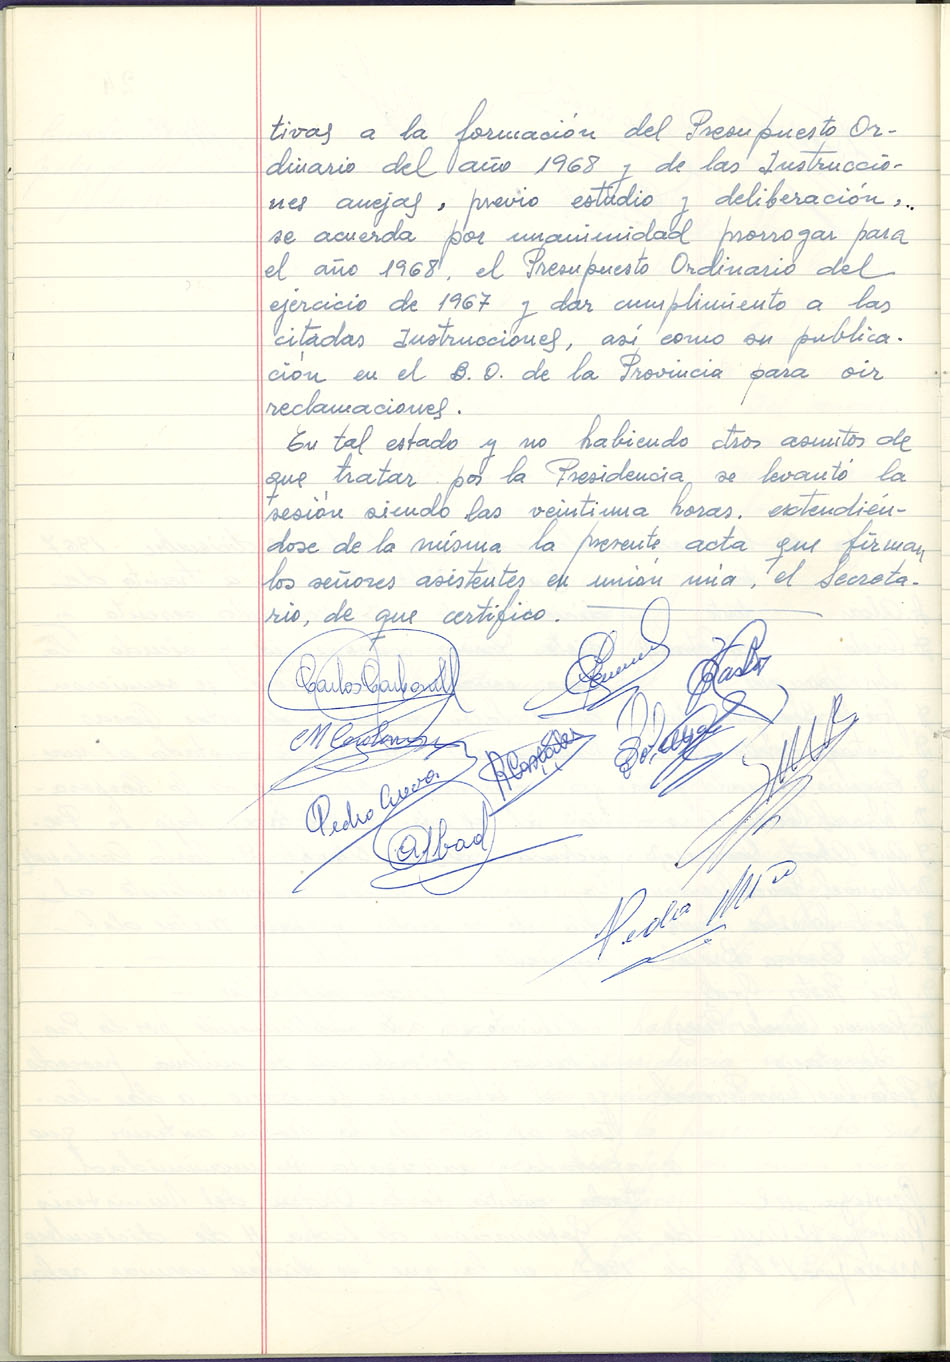 tivas a la formación del Presupuesto Or-
dinario del año 1968 y de las Instruccio-
nes anejas, previo estudio y deliberación,
se acuerda por unanimidad prorrogar para
el año 1968, el Presupuesto Ordinario del
ejercicio de 1967 y dar cumplimiento a las
citadas Instrucciones, así como su publica-
ción en el B.O. de la Provincia para oir
reclamaciones.
En tal estado y no habiendo otros asuntos de
que tratar por la Presidencia se levantó la
sesión siendo las veintiuna horas, extendién-
dose de la misma la presente acta que firman
los señores asistentes en unión mía, el Secreta-
rio, de que certifico.
Carlos Carbonell
Pedro
Abad
Pedro